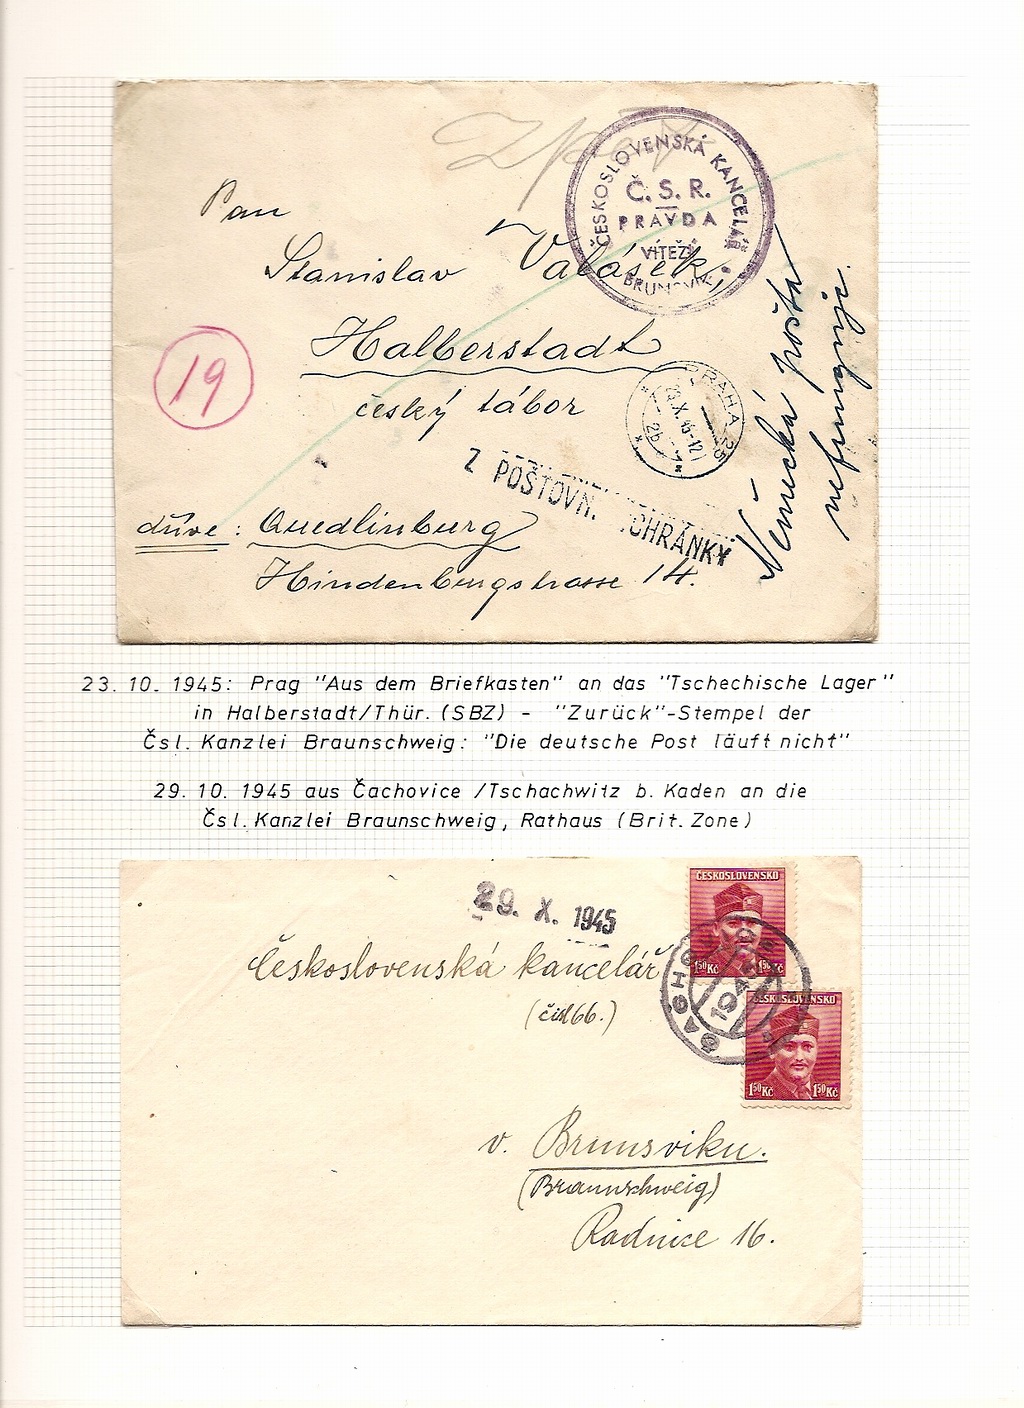 Zpět
ČESKOSLOVENSKÁ KANCELÁŘ
Č. S. R.
PRAVDA
VÍTĚZÍ
Pan
Stanislav Valášek,
Halberstadt
český tábor
19
PRAHA 25
Z POŠTOVN. SCHRÁNKY
Německá pošta
nefunguje.
dříve: Quedlinburg
Hindenburgstrasse 14.
23. 10. 1945: Prag "Aus dem Briefkasten" an das "Tschechische Lager"
in Halberstadt/Thür. (SBZ) - "Zurück"-Stempel der
Čsl. Kanzlei Braunschweig: "Die deutsche Post läuft nicht"
29. 10. 1945 aus Čachovice /Tschachwitz b. Kaden an die
Čsl. Kanzlei Braunschweig, Rathaus (Brit. Zone)
29. X. 1945
ČESKOSLOVENSKO
150Kč 150Kč
Československá kancelář
ČESKOSLOVENSKO
150Kč 150Kč
v. Brunsviku.
(Braunschweig)
Radnice 16.